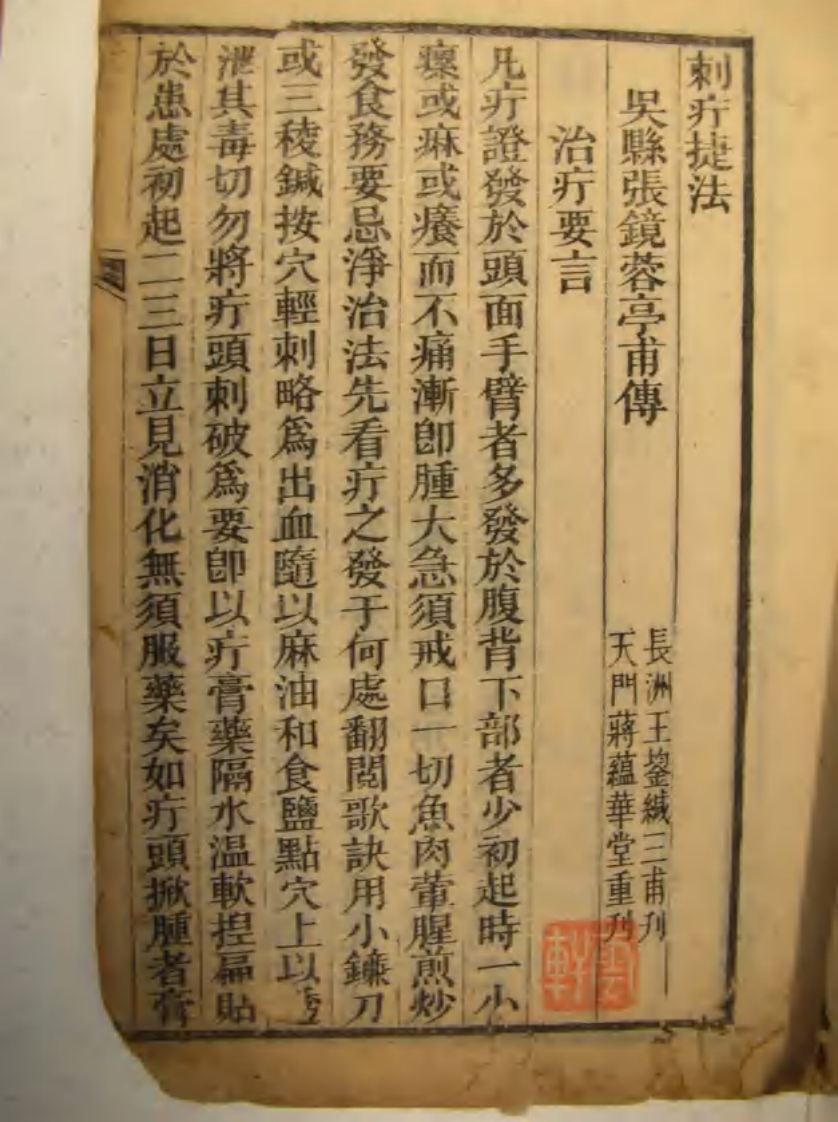 刺疔捷法
吳縣張鏡蓉亭甫傳
長洲王鋆緘三甫刋
天門蔣蘊華堂重刋
治疔要言
凡疔證發於頭面手臂者多發於腹背下部者少初起時一小
瘰或麻或癢而不痛漸卽腫大急須戒口一切魚肉葷腥煎炒
發食務要忌淨治法先看疔之發于何處翻閱歌訣用小鐮刀
或三稜鍼按穴輕刺略爲出血隨以麻油和食鹽點穴上以透
泄其毒切勿將疔頭刺破爲要卽以疔膏藥隔水温軟捏扁貼
於患處初起二三日立見消化無須服藥矣如疔頭掀腫者膏